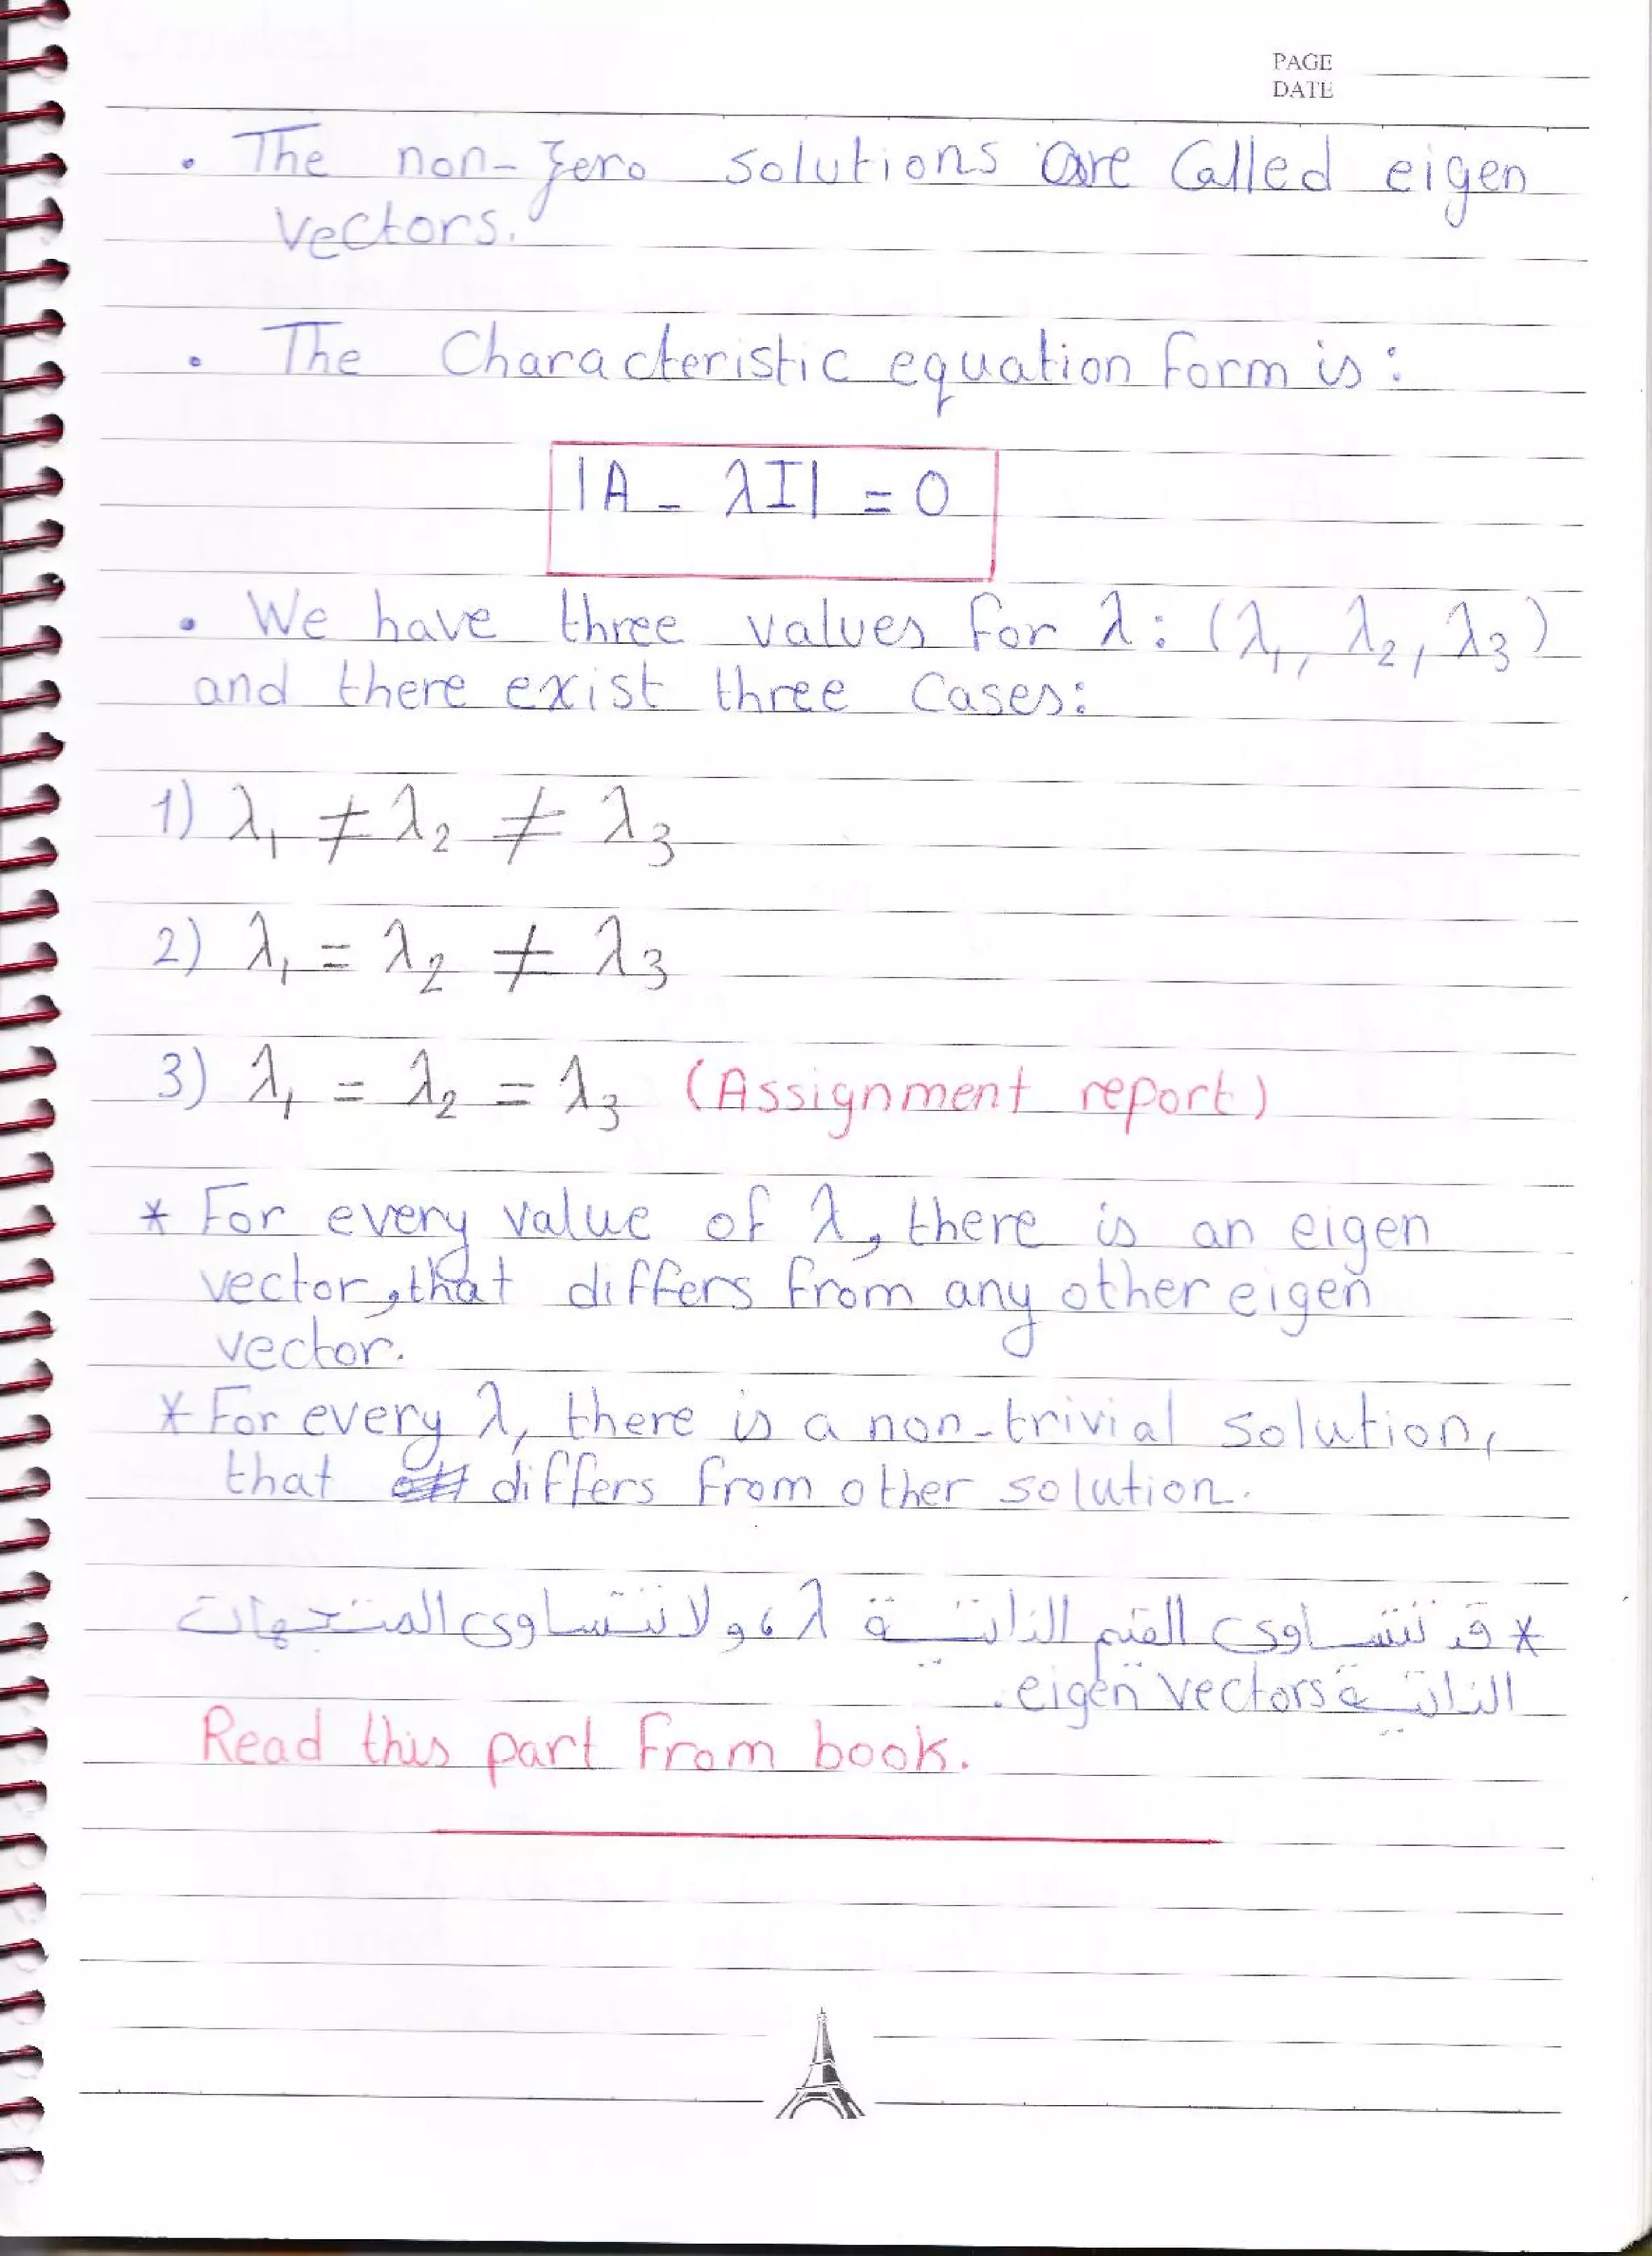 PAGE
DATE
. The non-zero solutions are called eigen
vectors.
. The Characteristic equation form is :
|A - λI| = 0
. We have three values for λ : (λ1, λ2, λ3)
and there exist three cases:
1) λ1 ≠ λ2 ≠ λ3
2) λ1 = λ2 ≠ λ3
3) λ1 = λ2 = λ3 (Assignment report)
* For every value of λ, there is an eigen
vector, that differs from any other eigen
vector.
* For every λ, there is a non-trivial solution,
that differs from other solution.
* قد تتساوى القيم الذاتية λ، ولا تتساوى المتجهات
الذاتية eigen vectors.
Read this part from book.